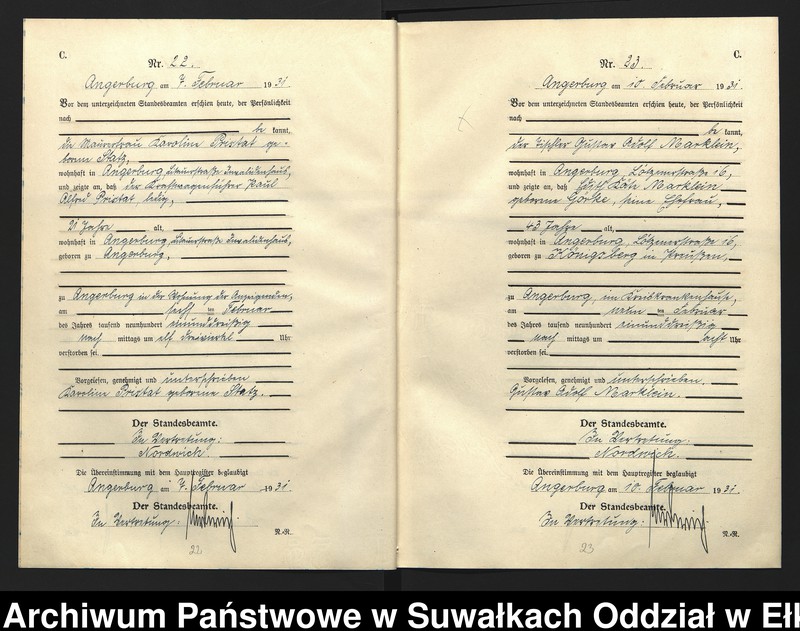 C.
Nr. 22.
Angerburg am 7. Februar 1931
Vor dem unterzeichneten Standesbeamten erschien heute, der Persönlichkeit
nach
be kannt,
die Maurerfrau Karoline Pristat ge-
borene Statz,
wohnhaft in Angerburg, Invalidenhaus,
und zeigte an, daß der Kraftwagenführer Paul
Alfred Pristat, ledig,
21 Jahre alt,
wohnhaft in Angerburg, Invalidenhaus,
geboren zu Angerburg,
zu Angerburg in der Wohnung der Anzeigenden,
am sechs ten Februar
des Jahres tausend neunhundert einunddreißig
nach mittags um elf dreiviertel Uhr
verstorben sei.
Vorgelesen, genehmigt und unterschrieben
Karoline Pristat geborene Statz.
Der Standesbeamte.
In Vertretung:
Nordwich.
Die Übereinstimmung mit dem Hauptregister beglaubigt
Angerburg am 7. Februar 1931.
Der Standesbeamte.
In Vertretung:
N.-R.
22
C.
Nr. 23.
Angerburg am 10. Februar 1931.
Vor dem unterzeichneten Standesbeamten erschien heute, der Persönlichkeit
nach
be kannt,
der Tischler Gustav Adolf Marklein,
wohnhaft in Angerburg, Lötzenerstraße 16,
und zeigte an, daß Marklein
geborene Görke, seine Ehefrau,
43 Jahre alt,
wohnhaft in Angerburg, Lötzenerstraße 16,
geboren zu Königsberg in Preußen,
zu Angerburg, im Kreiskrankenhause,
am neun ten Februar
des Jahres tausend neunhundert einunddreißig
nach mittags um acht Uhr
verstorben sei.
Vorgelesen, genehmigt und unterschrieben.
Gustav Adolf Marklein.
Der Standesbeamte.
In Vertretung:
Nordwich.
Die Übereinstimmung mit dem Hauptregister beglaubigt
Angerburg am 10. Februar 1931.
Der Standesbeamte.
In Vertretung:
N.-R.
23
Archiwum Państwowe w Suwałkach Oddział w Ełk